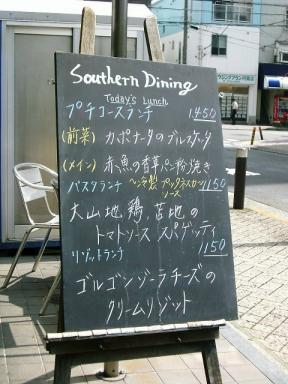 Southern Dining
Today's Lunch
プチコースランチ 1450
(前菜) カポナータのブルスケッタ
(メイン) 赤魚の香草パン粉焼き
パスタランチ 1150
ソース
大山地鶏
トマトソース スパゲッティ
リゾットランチ 1150
ゴルゴンゾーラチーズの
クリームリゾット